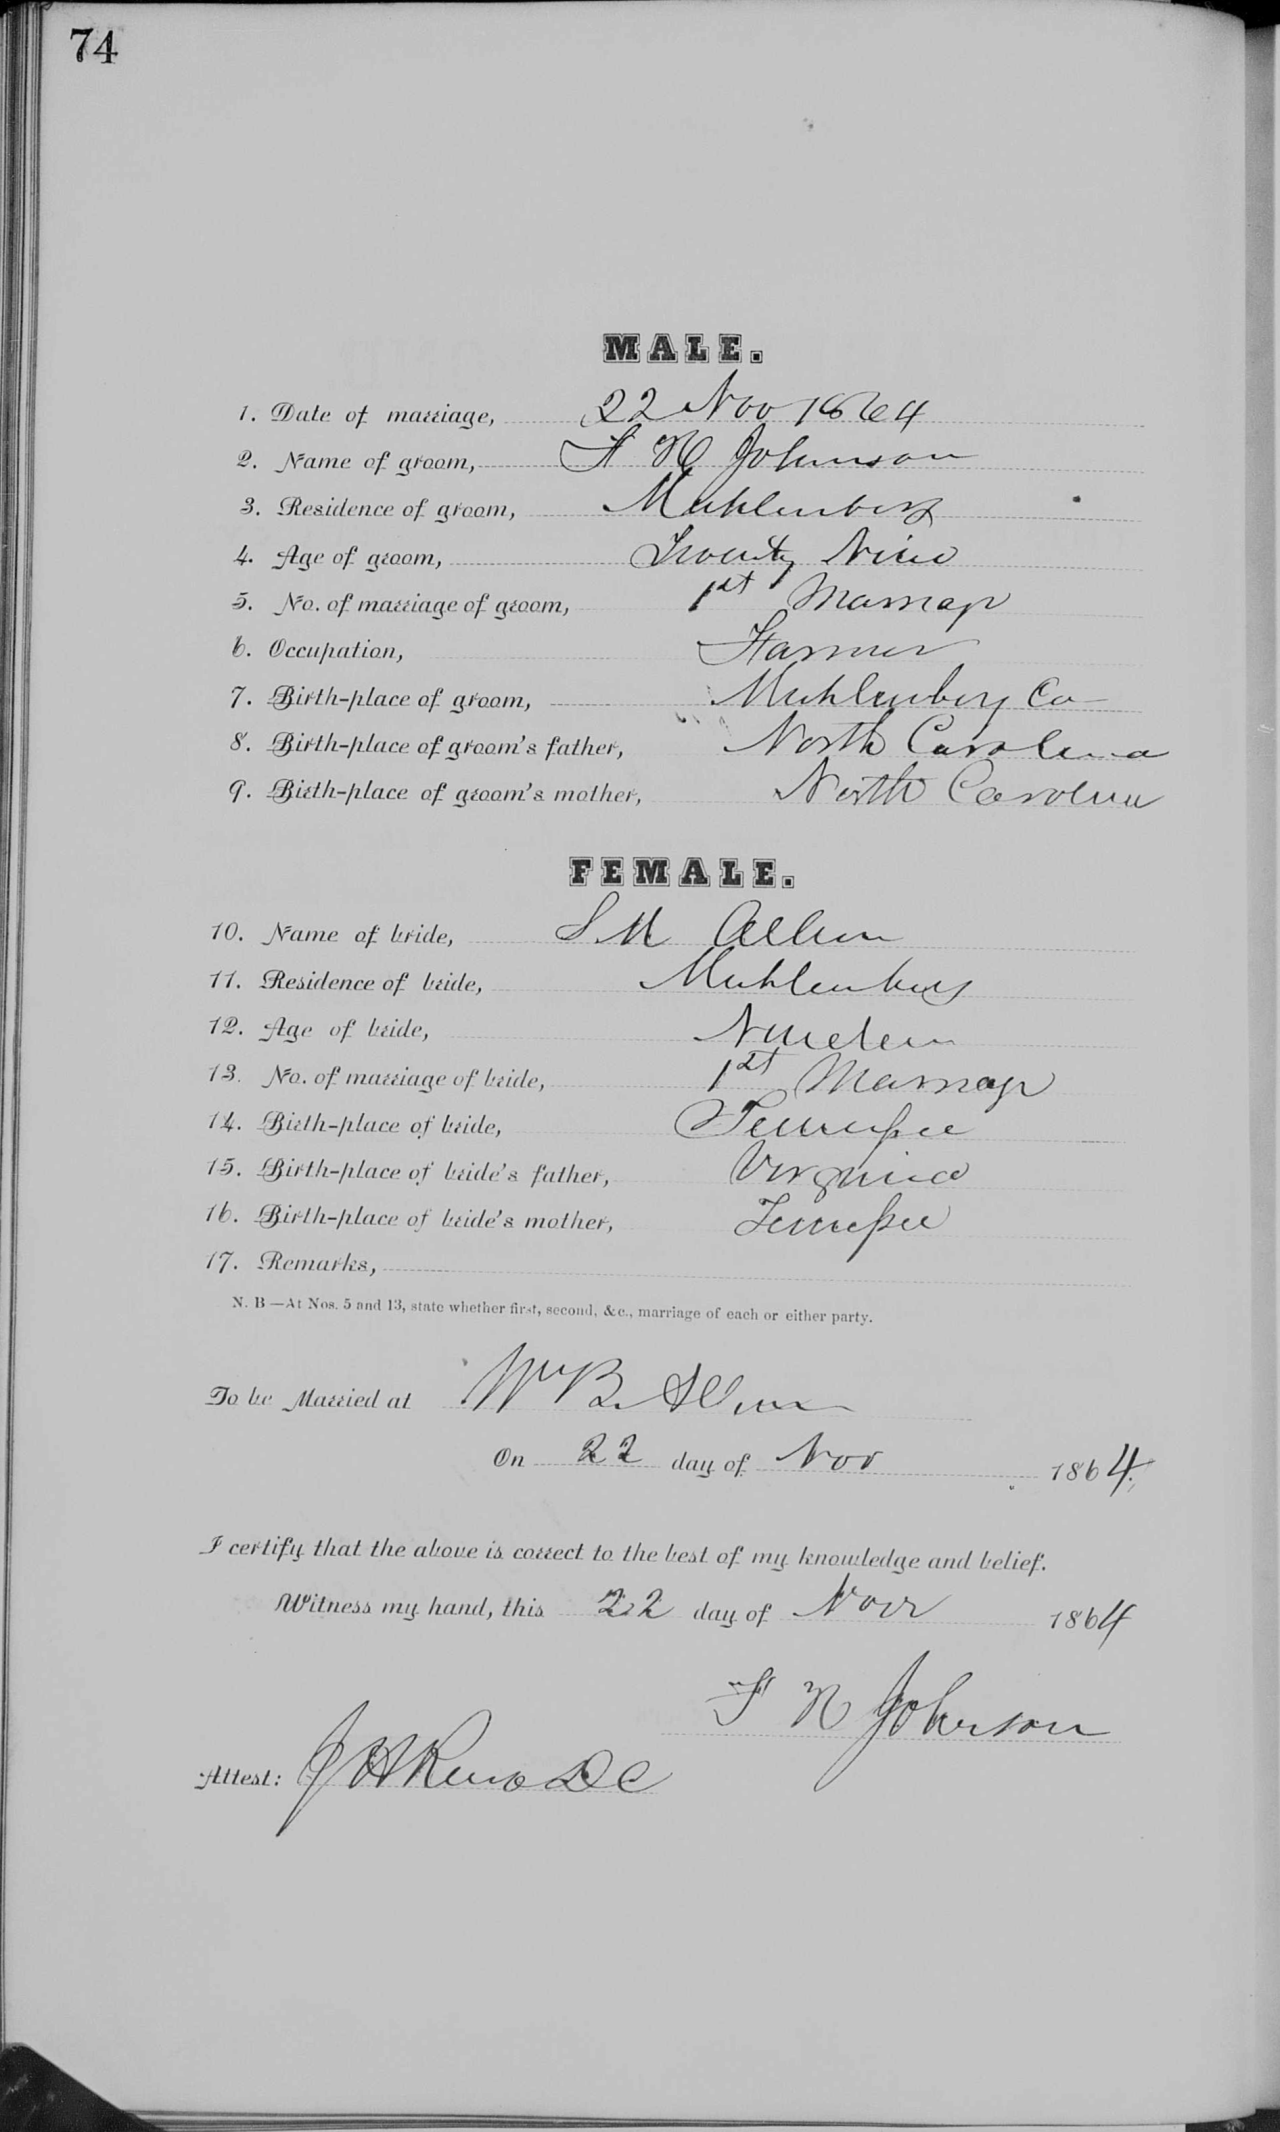 74
MALE.
1. Date of marriage, 22 Nov 1864
2. Name of groom, Johnson
3. Residence of groom, Muhlenberg
4. Age of groom, Twenty Nine
5. No. of marriage of groom, 1st Marriage
6. Occupation, Farmer
7. Birth-place of groom, Muhlenberg Co
8. Birth-place of groom's father, North Carolina
9. Birth-place of groom's mother, North Carolina
FEMALE.
10. Name of bride, S. M Allen
11. Residence of bride, Muhlenberg
12. Age of bride, Nineteen
13. No. of marriage of bride, 1st Marriage
14. Birth-place of bride, Tennessee
15. Birth-place of bride's father, Virginia
16. Birth-place of bride's mother, Tennessee
17. Remarks,
N. B—At Nos. 5 and 13, state whether first, second, &c., marriage of each or either party.
To be Married at Wm B. Allen
On 22 day of Nov 1864.
I certify that the above is correct to the best of my knowledge and belief.
Witness my hand, this 22 day of Novr 1864
Johnson
Attest: J H Reno DC